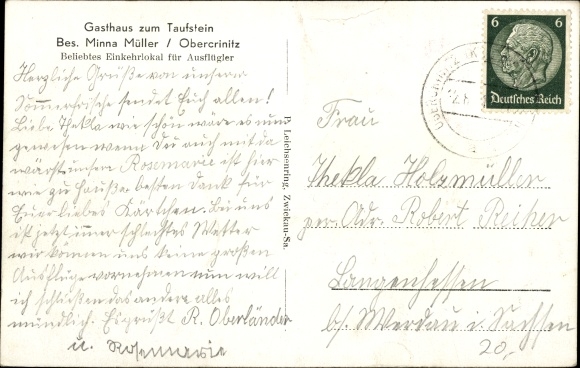 Gasthaus zum Taufstein
Bes. Minna Müller / Obercrinitz
Beliebtes Einkehrlokal für Ausflügler
Herzliche Grüße von unsern
Sommerfrische sendet Euch allen!
Liebe Thekla wie schön wäre es nun
gewesen wenn Du auch mit da
wärst unsere Rosemarie ist hier
wie zu Hause besten Dank für
Euer liebes Kärtchen. Bei uns
ist jetzt immer schlechtes Wetter
wir können uns keine großen
Ausflüge vornehmen nun will
ich schließen das andere alles
mündlich. Es grüßt R. Oberländer
u. Rosemarie
P. Leichsenring, Zwickau-Sa.
6 6
Deutsches Reich
Frau
Thekla Holzmüller
per Adr. Robert Reiher
Langenhessen
b/ Werdau i. Sachsen
20,-